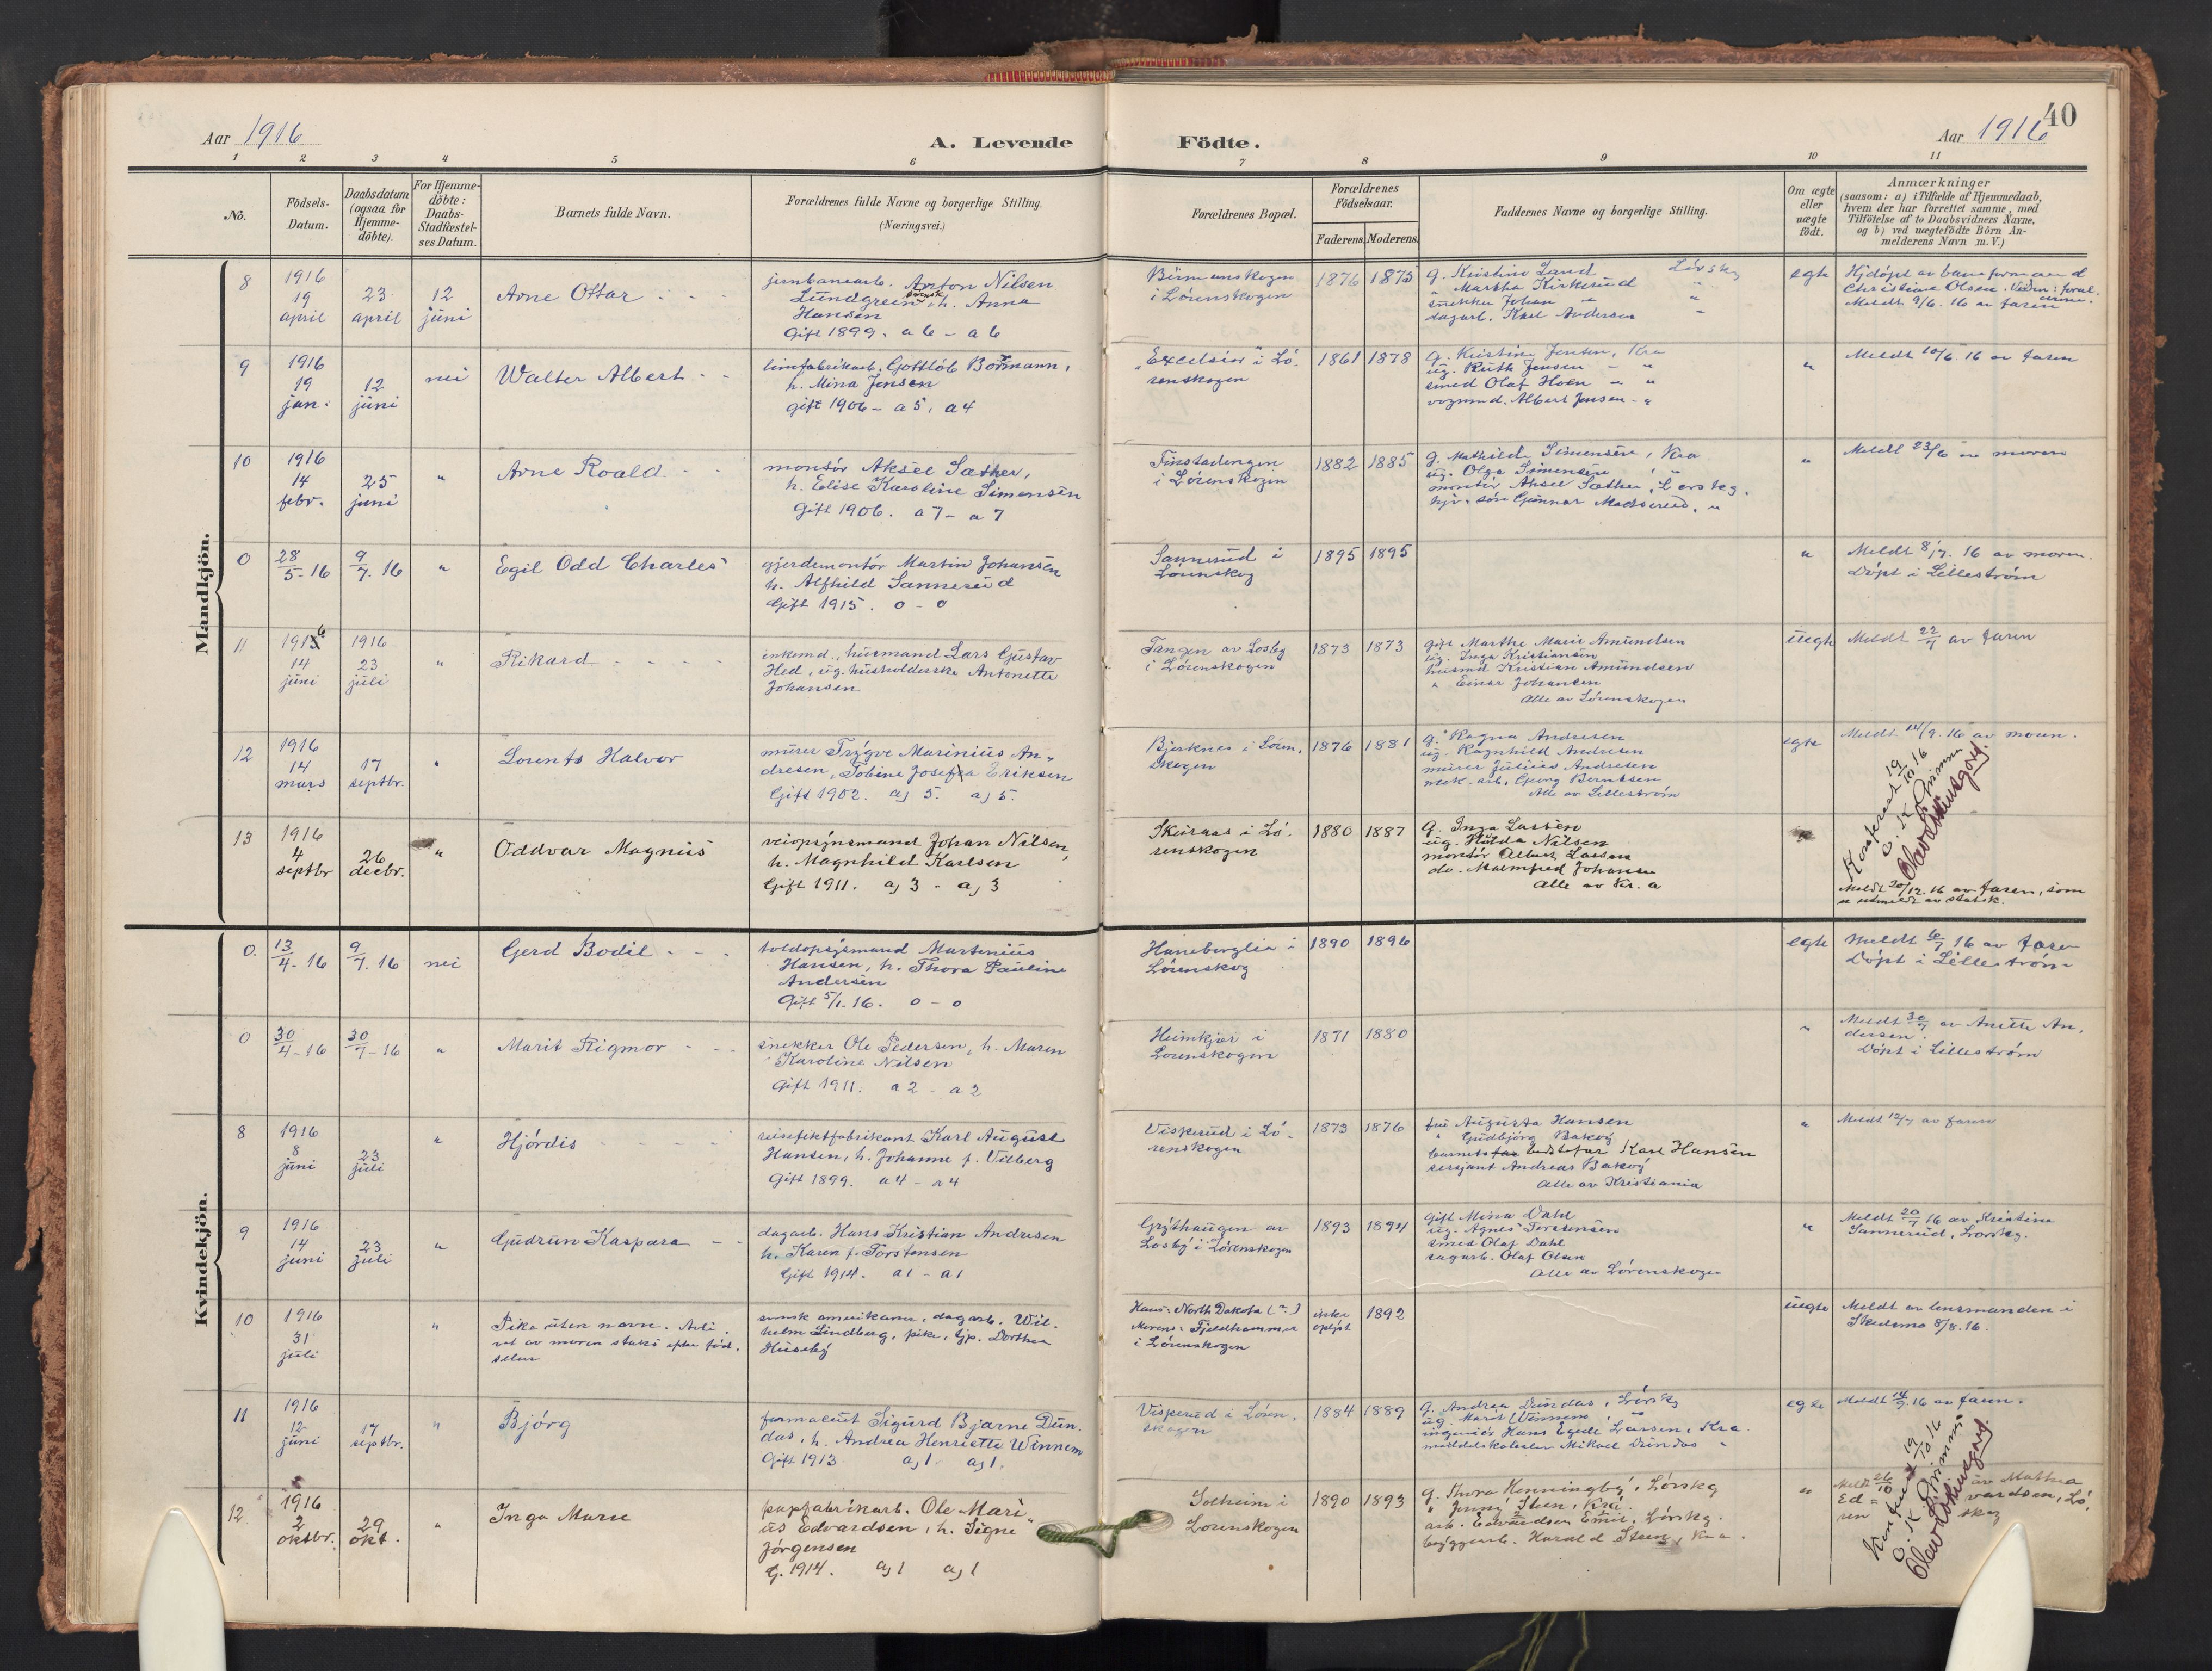 40
Aar 1916
A. Levende Födte.
Aar 1916
1 2 3 4 5 6 7 8 9 10 11
No.
Födsels-
Datum.
Daabsdatum
(ogsaa for
Hjemme-
döbte).
For Hjemme-
döbte:
Daabs-
Stadfæstel-
ses Datum.
Barnets fulde Navn.
Forældrenes fulde Navne og borgerlige Stilling.
(Næringsvei.)
Forældrenes Bopæl.
Forældrenes
Födselsaar.
Faderens. Moderens.
Faddernes Navne og borgerlige Stilling.
Om ægte
eller
uægte
födt.
Anmærkninger
(saasom: a) i Tilfælde af Hjemmedaab,
hvem der har forrettet samme, med
Tilföielse af to Daabsvidners Navne,
og b) ved uægtefödte Börn An-
melderens Navn m. V.)
Mandkjön.
8
1916
19
april
23
april
12
juni
Arne Ottar
jernbanearb. Anton Nilsen
Lundgreen svensk h. Anna
Hansen
Gift 1899. a 6 - a 6
i Lørenskogen
1876 1875
g. Kristine Sand Lørskg
" Martha Kirkerud "
snekker Johan "
dagarb. Karl Andersen "
egte
Hjdøpt av
Christine Olsen.
Meldt 9/6. 16 av faren
9
1916
19
jan.
12
juni
nei
Walter Albert
limfabrikarb. Gottlob Bormann,
h. Mina Jensen
gift 1906 - a 5, a 4
"Excelsior" i Lø-
renskogen
1861 1878
g. Kristine Jensen, Kra
ug. Ruth Jensen - "
smed Olaf Hoen - "
vognmd. Albert Jensen - "
"
Meldt 10/6. 16 av faren
10
1916
14
febr.
25
juni
"
Arne Roald
montör Aksel Sæther,
h. Elise Karoline Simensen
Gift 1906. a 7 - a 7
Finstadengen
i Lørenskogen
1882 1885
g. Mathilde Simensen, Kra
ug. Olga Simensen, "
montör Aksel Sæther, Lørskg.
søn Gunnar "
"
Meldt 23/6 av moren
0
28/5-16
9/7.16
"
Egil Odd Charles
gjerdemontör Martin Johansen
h. Alfhild Sannerud
Gift 1915. 0 - 0
Sannerud i
Lørenskog
1895 1895
"
Meldt 8/7. 16 av moren.
Döpt i Lilleström
11
1916
14
juni
1916
23
juli
"
Rikard
enkemd., husmand Lars Gustav
Hed, ug. husholderske Antonette
Johansen
Tangen av Losby
i Lørenskogen
1873 1873
gift Marthe Marie Amundsen
ug. Inga Kristiansen
husmd Kristian Amundsen
" Einar Johansen
Alle av Lørenskogen
uegte
Meldt 22/7 av faren
12
1916
14
mars
17
septbr.
"
Lorents Halvor
murer Trygve Marinius An-
dresen, Tobine Josefa Eriksen
Gift 1902. aj 5. aj 5.
Bjerknes i Løren-
skogen
1876 1881
g. Ragna Andresen
ug. Ragnhild Andresen
murer Julius Andresen
mek. arb. Georg Berntsen
Alle av Lilleström
egte
Meldt 14/9. 16 av moren.
Konferert 19/10 16
13
1916
4
septbr
26
decbr.
"
Oddvar Magnus
veiopsynsmand Johan Nilsen,
h. Magnhild Karlsen
Gift 1911. aj 3 - aj 3
i Lø-
renskogen
1880 1887
g. Inga Larsen
ug. Hulda Nilsen
montör Albert Larsen
do. Malmfred Johansen
Alle av Kr.a
Meldt 20/12. 16 av faren, som
er utmeldt av statsk.
Kvindekjön.
0.
13/4.16
9/7.16
nei
Gerd Bodil
toldopsynsmand Martenius
Hansen, h. Thora Pauline
Andersen
Gift 5/1. 16. 0 - 0
Haneborglia i
Lørenskog
1890 1896
egte
Meldt 6/7 16 av faren
Döpt i Lilleström
0
30/4-16
30/7-16
"
Marit Rigmor
snekker Ole Pedersen, h. Maren
Karoline Nilsen
Gift 1911. a 2 - a 2
Heimkjær i
Lørenskogen
1871 1880
"
Meldt 30/7 av Anette An-
dersen.
Döpt i Lilleström
8
1916
8
juni
23
juli
"
Hjördis
reiseeffektfabrikant Karl August
Hansen, h. Johanne f. Vilberg
Gift 1899. a 4 - a 4
Viskerud i Lø-
renskogen
1873 1876
fru Augusta Hansen
" Gudbjörg Bakøy
barnets far bedstefar Karl Hansen
sersjant Andreas Bakøy
Alle av Kristiania
"
Meldt 12/7 av faren
9
1916
14
juni
23
juli
"
Gudrun Kaspara
dagarb. Hans Kristian Andresen
h. Karen f. Torstensen
Gift 1914. a1 - a1
Grythaugen av
Losby i Lørenskogen
1893 1894
gift Mina Dahl
ug. Agnes Torstensen
smed Olaf Dahl
sagarb. Olaf Olsen
Alle av Lørenskogen
"
Meldt 20/7 16 av Kristine
Sannerud, Lørskg.
10
1916
31
juli
"
Pike uten navn. Avli-
vet av moren straks efter föd-
selen
svensk amerikaner, dagarb. Wil-
helm Lindberg, pike, tjp. Dorthea
Huseby
Hans: North Dakota (?)
Morens: Fjeldhammer
i Lørenskogen
ikke
oplyst
1892
uegte
Meldt av lensmanden i
Skedsmo 8/8. 16.
11
1916
12
juni
17
septbr.
"
Björg
farmaceut Sigurd Bjarne Dun-
das, h. Andrea Henriette Winnem
Gift 1913. aj 1 aj 1.
Visperud i Løren-
skogen
1884 1889
g. Andrea Dundas, Lørskg
ug. Marit Winnem, "
ingeniör Hans Egede Larsen, Kra.
middelskoleelev Mikael Dundas "
egte
Meldt 14/9. 16 av faren.
Konferert 19/10 16
12
1916
2
oktbr.
29
okt.
"
Inga Marie
papfabrikarb. Ole Mari-
us Edvardsen, h. Signe
Jörgensen
G. 1914. aj 1 aj 1
Solheim i
Lørenskogen
1890 1893
g. Thora Henningby, Lørskg
" Jenny Steen, Kra.
arb. Edvardsen Emil, Lørskg.
bryggearb. Harald Steen, Kra.
"
Meldt 26/10 av Mathea
Edvardsen, Lø-
renskog